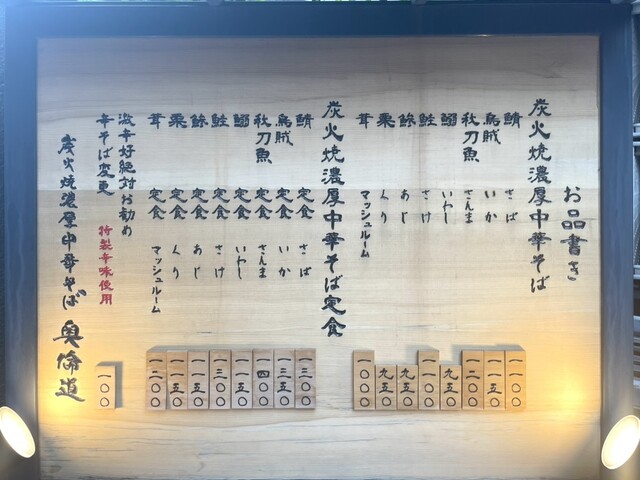 お品書き
炭火焼濃厚中華そば
鯖 さば 一〇〇〇
烏賊 いか 一一五〇
秋刀魚 さんま 一二〇〇
鰯 いわし 九五〇
鮭 さけ 一一〇〇
鯵 あじ 九五〇
栗 くり 九五〇
茸 マッシュルーム 一〇〇〇
炭火焼濃厚中華そば定食
鯖定食 さば 一三〇〇
烏賊定食 いか 一三五〇
秋刀魚定食 さんま 一四〇〇
鰯定食 いわし 一一五〇
鮭定食 さけ 一三〇〇
鯵定食 あじ 一一五〇
栗定食 くり 一一五〇
茸定食 マッシュルーム 一二〇〇
激辛好絶対お勧め
辛そば変更 特製辛味使用 一〇〇
炭火焼濃厚中華そば 奥倫道